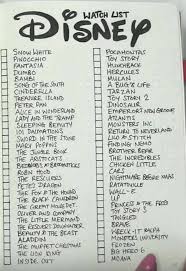 WATCH LIST
DISNEY
SNOW WHITE
PINOCCHIO
FANTASIA
DUMBO
BAMBI
SONG OF THE SOUTH
CINDERELLA
TREASURE ISLAND
PETER PAN
ALICE IN WONDERLAND
LADY AND THE TRAMP
SLEEPING BEAUTY
101 DALMATIONS
SWORD IN THE STONE
MARY POPPINS
THE JUNGLE BOOK
THE ARISTOCATS
BEDKNOBS & BROOMSTICKS
ROBIN HOOD
THE RESCUERS
PETE'S DRAGON
THE FOX & THE HOUND
THE BLACK CAULDRON
THE GREAT MOUSE DET.
OLIVER AND COMPANY
THE LITTLE MERMAID
THE RESCUERS DOWNUNDER
BEAUTY & THE BEAST
ALADDIN
THE MUPPET CHRISTMAS
THE LION KING
POCAHONTAS
TOY STORY
HUNCHBACK
HERCULES
MULAN
A BUG'S LIFE
TARZAN
TOY STORY 2
DINOSAUR
EMPEROR'S NEW GROOVE
ATLANTIS
MONSTERS INC
RETURN TO NEVERLAND
LILO & STITCH
FINDING NEMO
BROTHER BEAR
THE INCREDIBLES
CHICKEN LITTLE
CARS
NIGHTMARE BEFORE XMAS
RATATOUILLE
WALL-E
UP
PRINCESS & THE FROG
TOY STORY 3
TANGLED
BRAVE
WRECK-IT RALPH
MONSTERS UNIVERSITY
FROZEN
BIG HERO 6
INSIDE OUT
MOANA